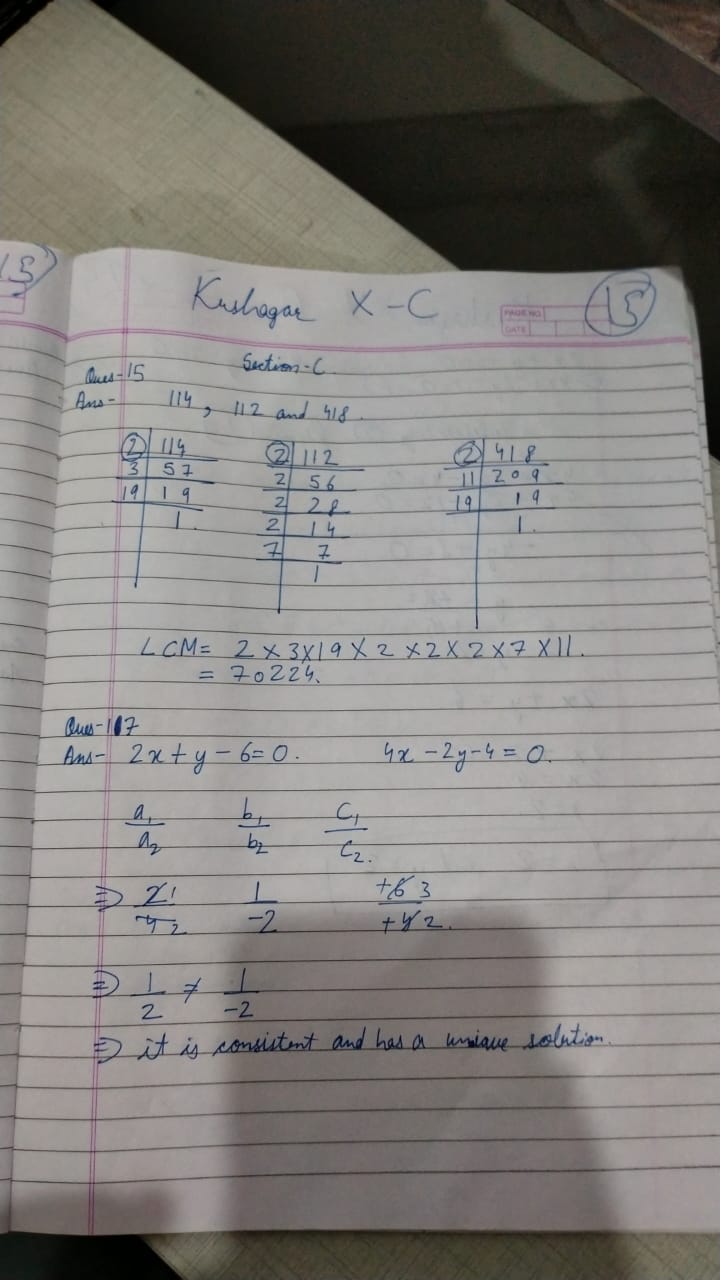 15
Kushagar X-C
PAGE NO.
DATE
15
Section-C
Ques-15
Ans- 114, 112 and 418.
2 | 114
3 | 57
19 | 19
1.
2 | 112
2 | 56
2 | 28
2 | 14
7 | 7
1
2 | 418
11 | 209
19 | 19
1.
LCM = 2 × 3 × 19 × 2 × 2 × 2 × 7 × 11.
= 70224.
Ques-17
Ans- 2x + y - 6 = 0. 4x - 2y - 4 = 0.
a₁/a₂ b₁/b₂ C₁/C₂.
⇒ 2 1/4 2 1/-2 +6 3/+4 2.
⇒ 1/2 ≠ 1/-2
⇒ it is consistent and has a unique solution.